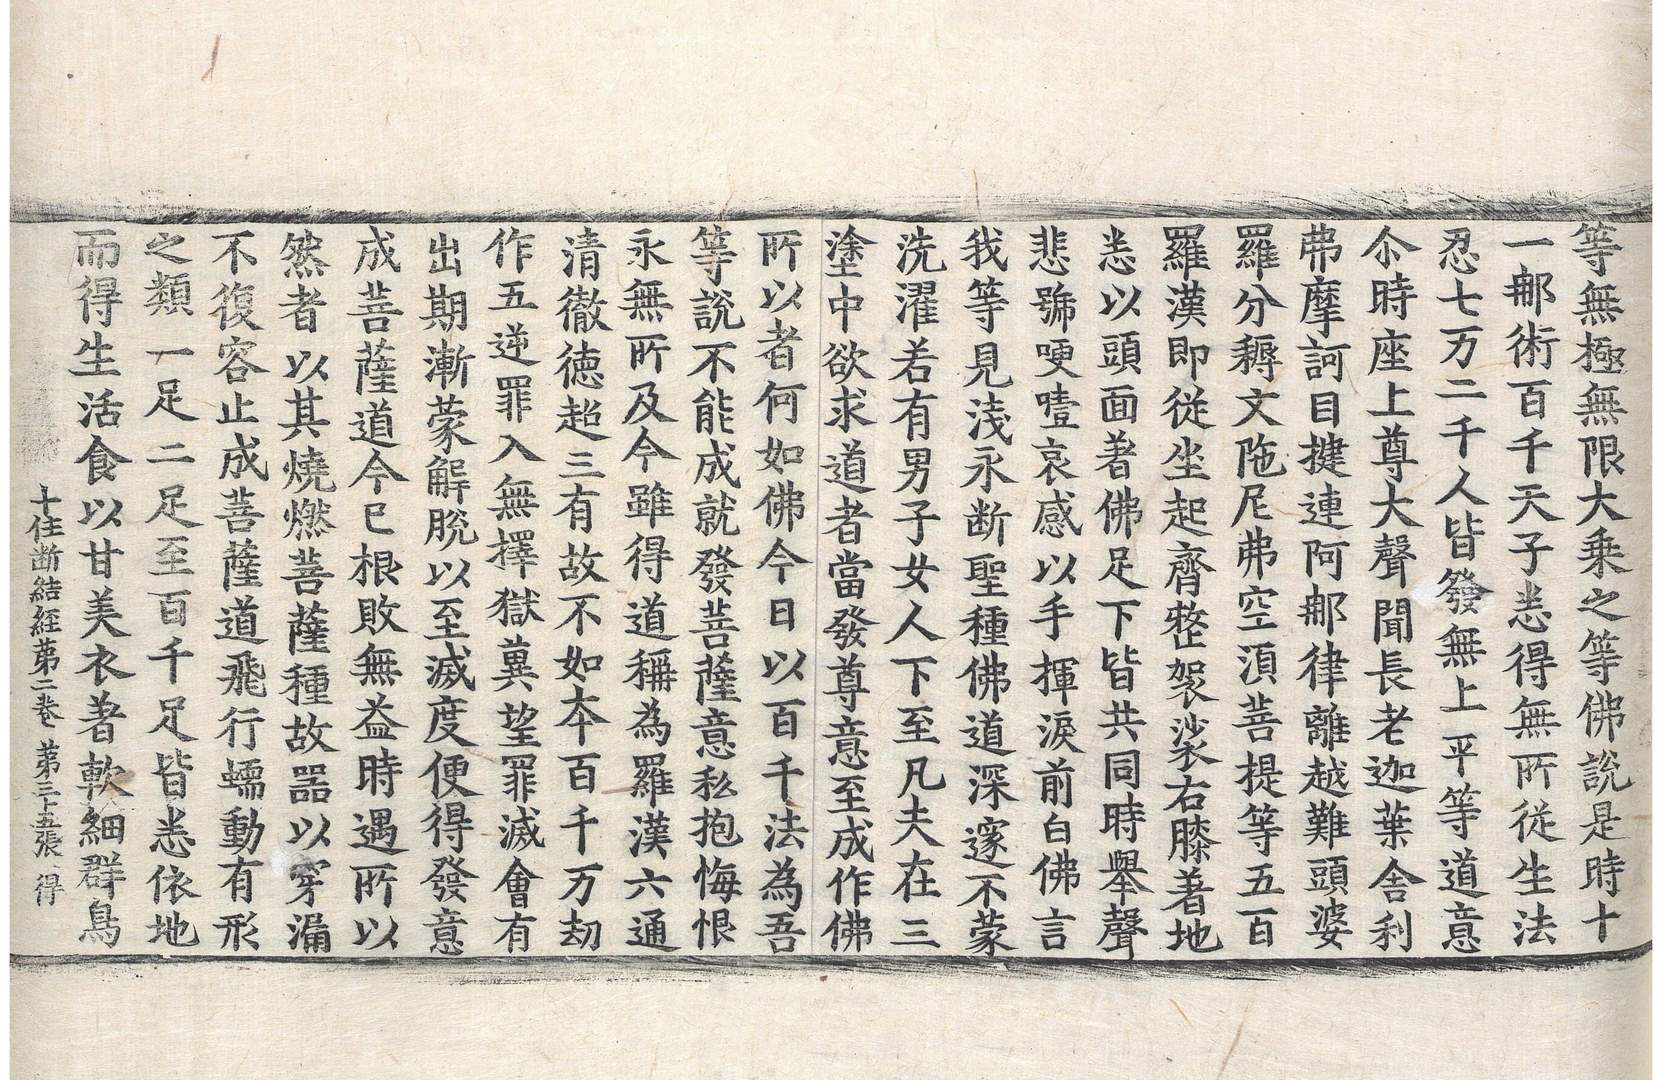 等無極無限大乗之等佛說是時十
一郍術百千天子悉得無所従生法
忍七万二千人皆發無上平等道意
尒時座上尊大聲聞長老迦葉舎利
弗摩訶目揵連阿郍律離越難頭婆
羅分耨文陁尼弗空湏菩提等五百
羅漢即従坐起齊整袈裟右膝著地
悉以頭面著佛足下皆共同時舉聲
悲號哽噎哀感以手揮淚前白佛言
我等見淺永断聖種佛道深邃不蒙
洗濯若有男子女人下至凡夫在三
塗中欲求道者當發尊意至成作佛
所以者何如佛今日以百千法為吾
等說不能成就發菩薩意私抱悔恨
永無所及今雖得道稱為羅漢六通
清徹徳超三有故不如夲百千万劫
作五逆罪入無擇獄冀望罪滅會有
出期漸蒙解脫以至滅度便得發意
成菩薩道今已根敗無益時遇所以
然者以其燒燃菩薩種故器以穿漏
不復容止成菩薩道飛行蠕動有形
之類一足二足至百千足皆悉依地
而得生活食以甘美衣著軟細群鳥
十住断結経苐二巻 第三十五張 得